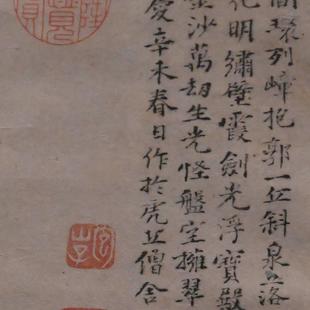 列嶂抱郭一丘斜泉落
化明繡壁霞劍光浮寶殿
沙萬劫生光怪盤空擁翠
慶辛未春日作於虎丘僧舍